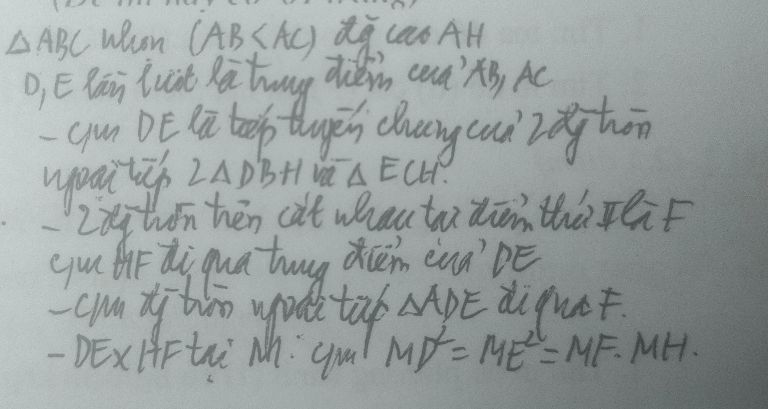 (Đề thi này có 01 trang)
△ABC nhọn (AB<AC) đg cao AH
D, E lần lượt là trung điểm của AB, AC
- cm DE là tiếp tuyến chung của 2 đg tròn
ngoại tiếp 2△DBH và △ECH.
- 2 đg tròn trên cắt nhau tại điểm thứ II là F
cm HF đi qua trung điểm của DE
- cm đg tròn ngoại tiếp △ADE đi qua F.
- DE x HF tại M. cm MD² = ME² = MF. MH.